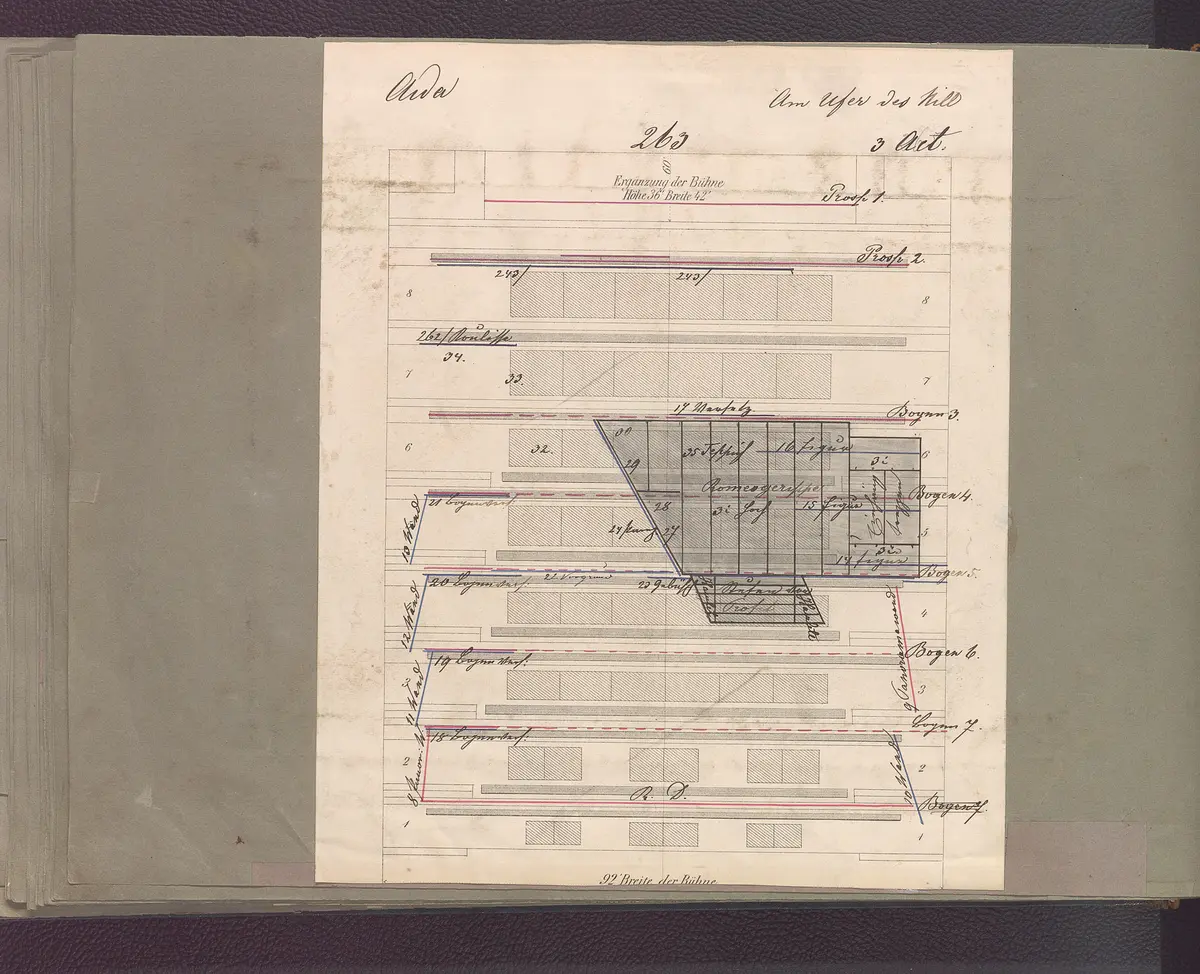 Aida
Am Ufer des Nill
263
3 Act.
60
Ergänzung der Bühne
Höhe 36' Breite 42'
Prosp 1.
Prosp 2.
243/ 243/
8 8
262/ Koulisse
34.
7 33. 7
17 Versetz
Bogen 3.
30
6 32. 35 Teppich 16 Figur 6
29 3i
Bogen 4.
21 Bogenvers.
28 3i hoch 15 Figur
13 Wand
27 5
3i
14 Figur
Bogen 5.
20 Bogenvers. 22 Vorgrund 23 Gebüsch
Stufen
12 Wand
4
Bogen 6.
19 Bogen vers:
9 Panoramawand
11 Wand
3
Bogen 7.
18 Bogen vers:
2 2
10 Wand
R. D.
Bogen 7.
1 1
92' Breite der Bühne